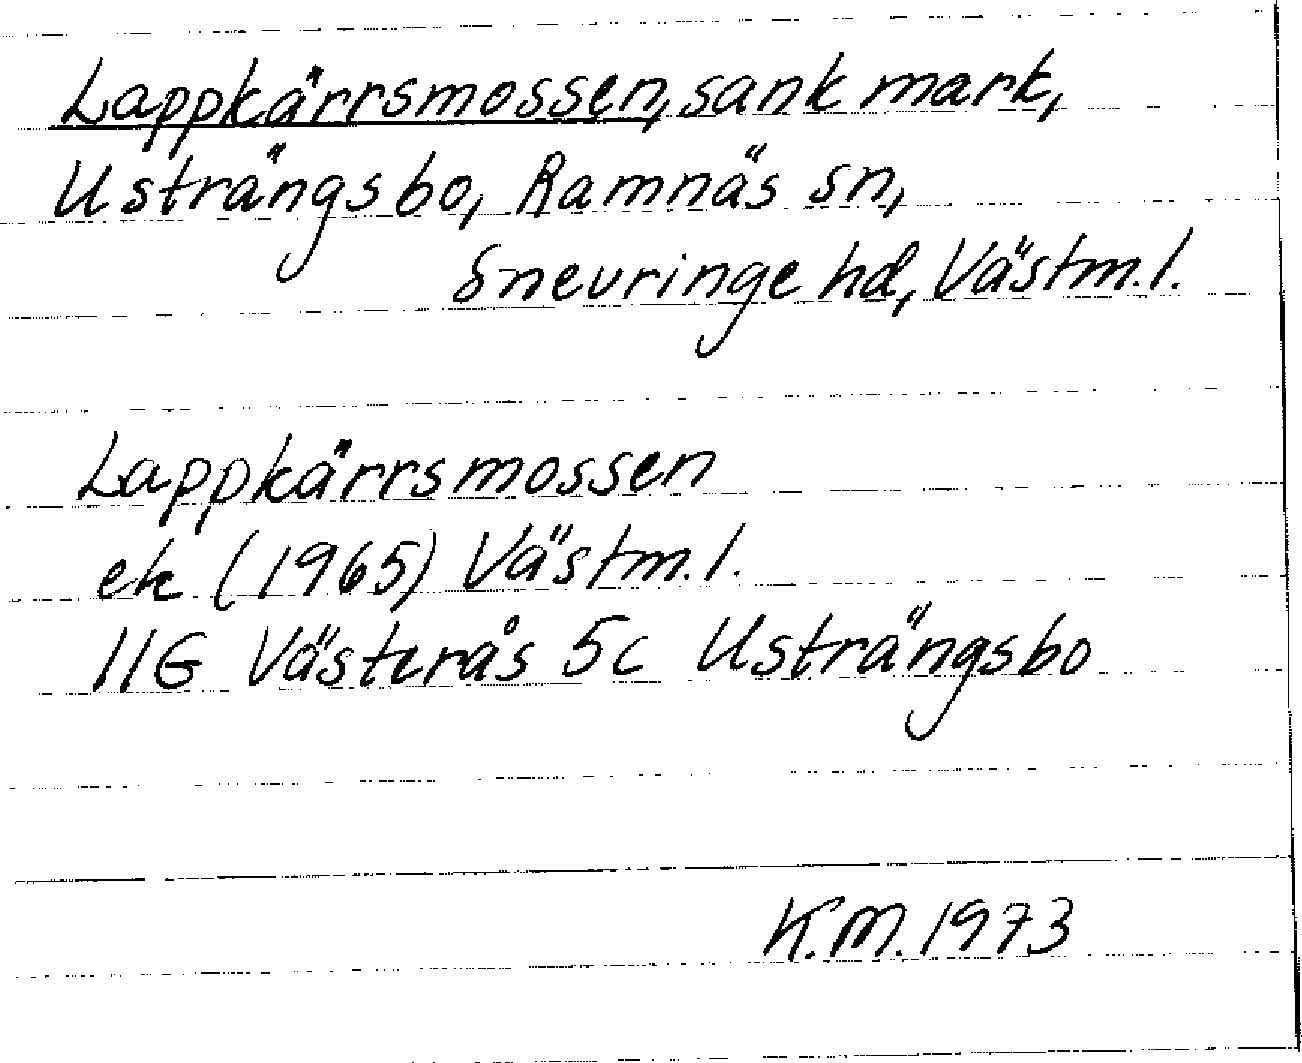 Lappkärrsmossen, sank mark,
Usträngsbo, Ramnäs sn,
Snevringe hd, Västm.l.
Lappkärrsmossen
ek (1965) Västm.l.
11G Västerås 5c Usträngsbo
K.M. 1973